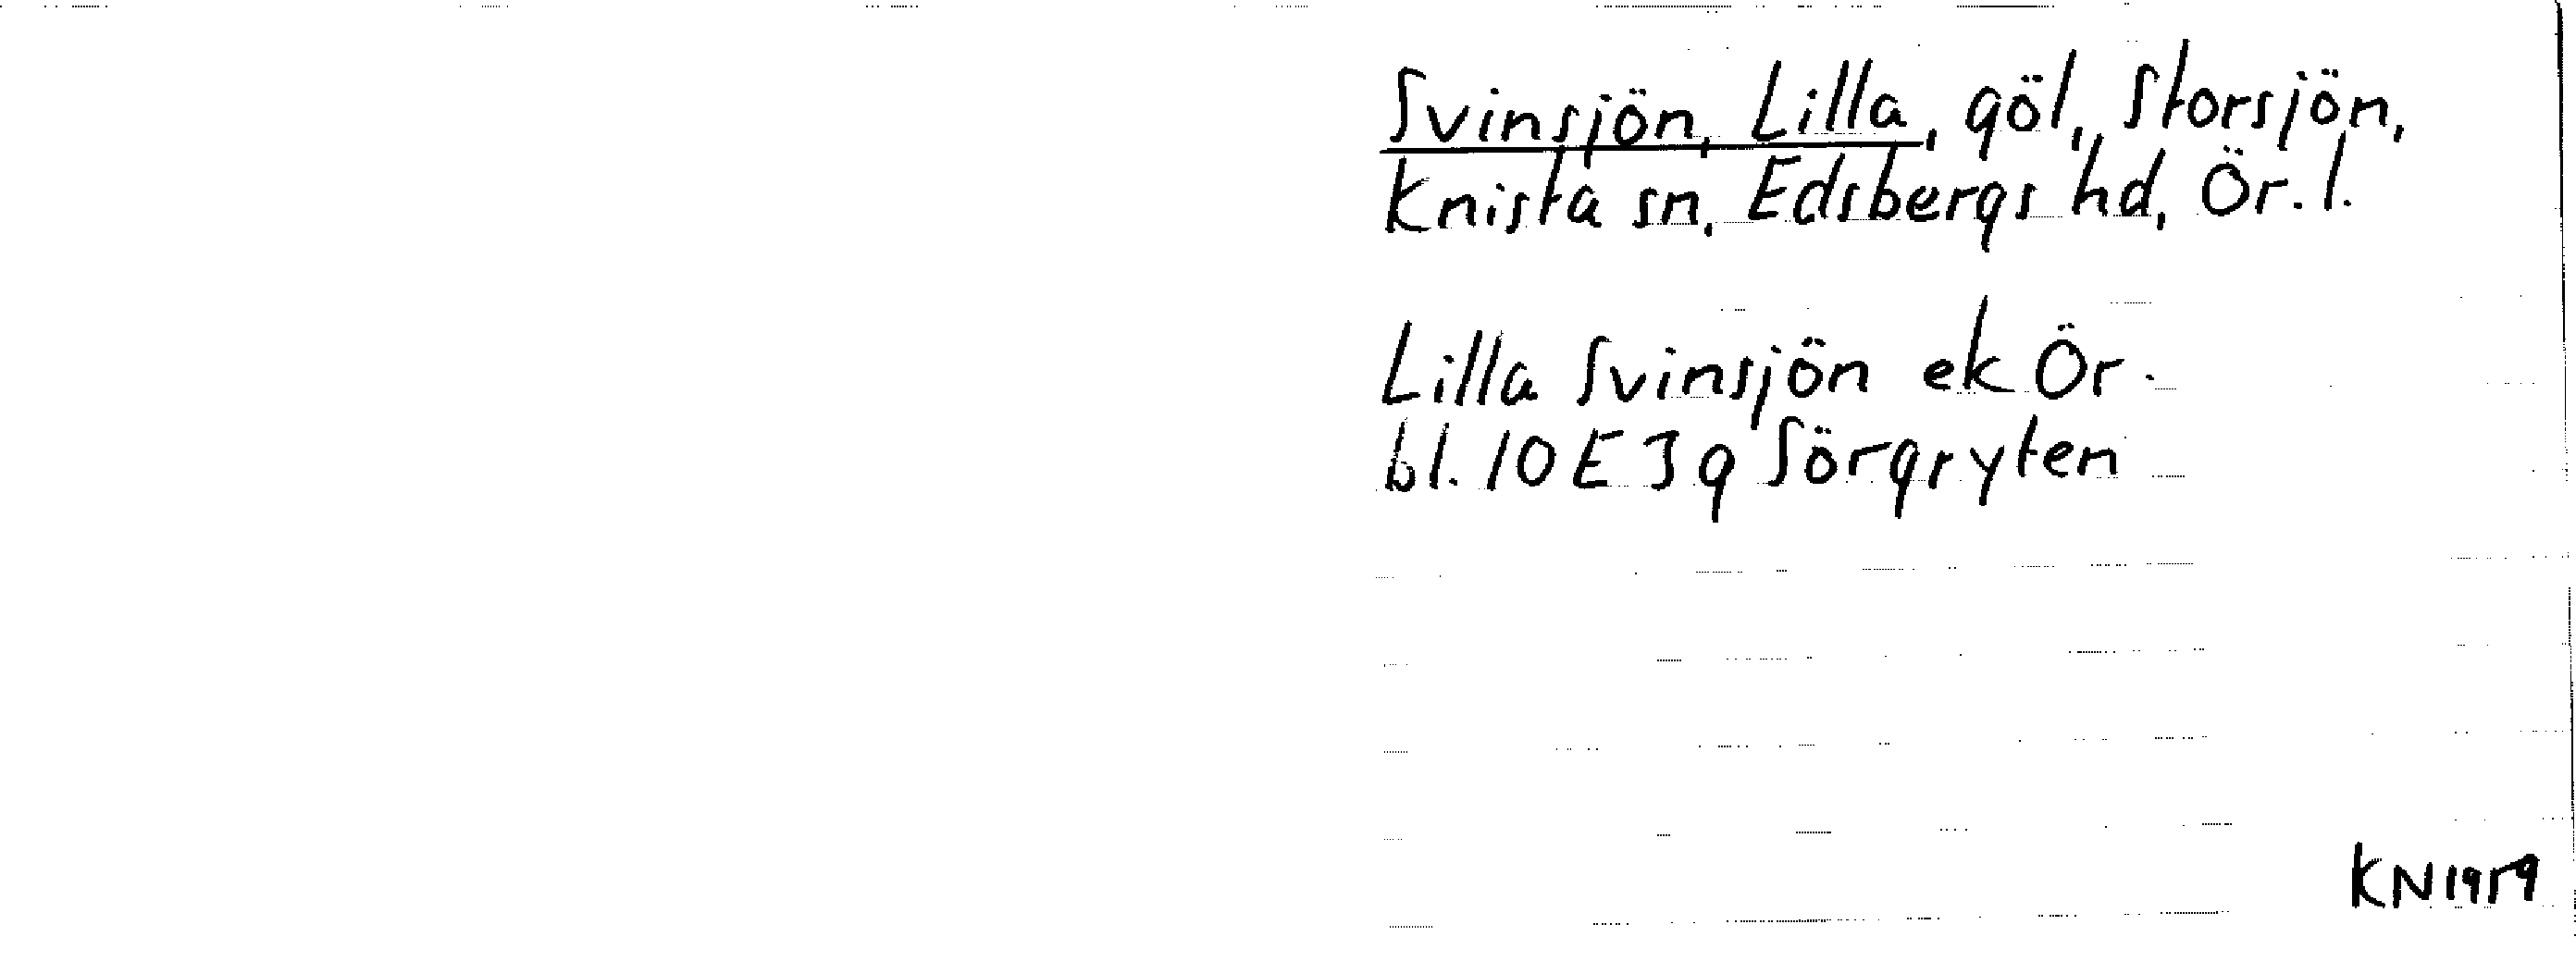 Svinsjön, Lilla, göl, Storsjön,
Knista sn, Edsbergs hd, Ör. l.
Lilla Svinsjön ek Ör.
bl. 10 E 3 g Sörgryten
KN 1959